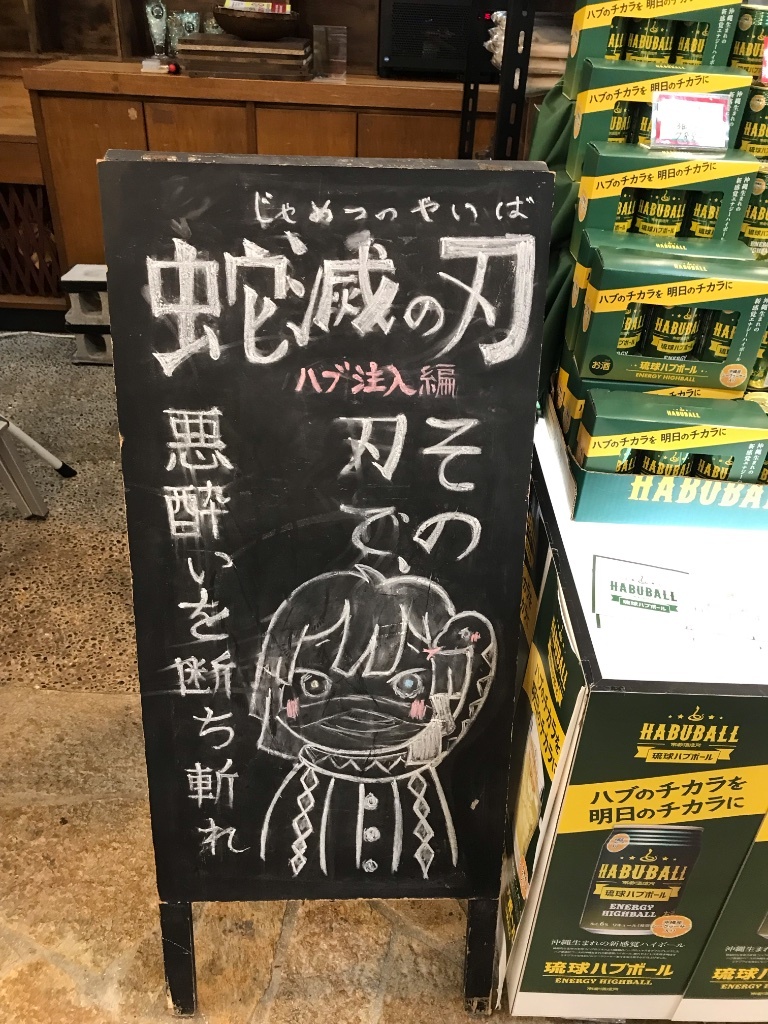 じゃめつのやいば
蛇滅の刃
ハブ注入編
その
刃で、
悪酔いを断ち斬れ
ハブのチカラを 明日のチカラに
HABUBALL
ハブのチカラを 明日のチカラに
HABUBALL
ハブのチカラを 明日のチカラに
HABUBALL
ハブのチカラを 明日のチカラに
HABUBALL
お酒
琉球ハブボール
ENERGY HIGHBALL
ハブのチカラを 明日のチカラに
HABUBALL
HABUBALL
琉球ハブボール
HABUBALL
琉球ハブボール
ハブのチカラを
明日のチカラに
HABUBALL
琉球ハブボール
ENERGY
HIGHBALL
沖縄生まれの新感覚ハイボール
琉球ハブボール
ENERGY HIGHBALL